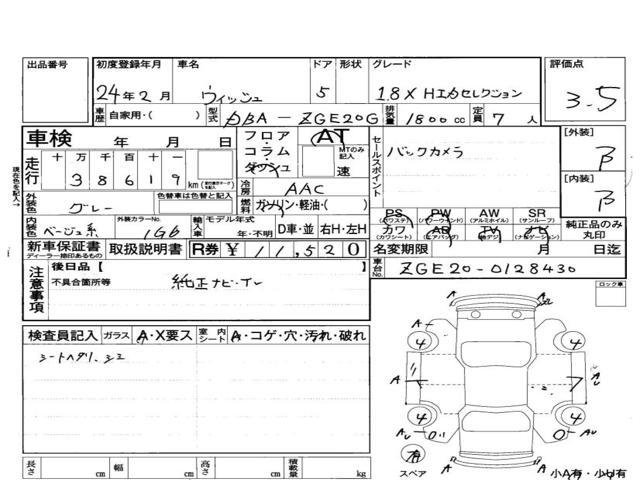 出品番号 初度登録年月 車名 ドア 形状 グレード 評価点
24年2月 ウィッシュ 5 1.8X HIDセレクション 3.5
車歴 自家用・( ) 型式 DBA - ZGE20G 排気量 1800cc 定員 7人
車検 年 月 日 フロア・コラム・ダッシュ AT MTのみ記入 速
セールスポイント バックカメラ
[外装] B
[内装] B
走行 十 万 千 百 十 一
38619 km
冷房 AAC
外装色 グレー 色替車は色替と記入 燃料 ガソリン・軽油・( )
内装色 ベージュ系 外装カラーNo. 1G6 輸入車 モデル年式 年・不明 D車・並 右H・左H
PS (パワステ) PW (パワーウインド) AW (アルミホイル) SR (サンルーフ)
カワ (カワシート) AB (エアバッグ) TV ナビ (ナビゲーション)
純正品のみ丸印
新車保証書 ディーラー捺印あるもの 取扱説明書 R券 ¥ 11,520
名変期限 月 日迄
車台No. ZGE20-0128430
注意事項 後日品【 】
不具合箇所等 純正ナビ・TV
ロック車
検査員記入 ガラス A・X要ス 室内シート A・コゲ・穴・汚れ・破れ
シートヘタリ、シミ
A A
4 4
A A AU
4 4
AU AU
有 スペア A A
小A有・小U有
長さ cm 幅 cm 高さ cm 積載量 kg